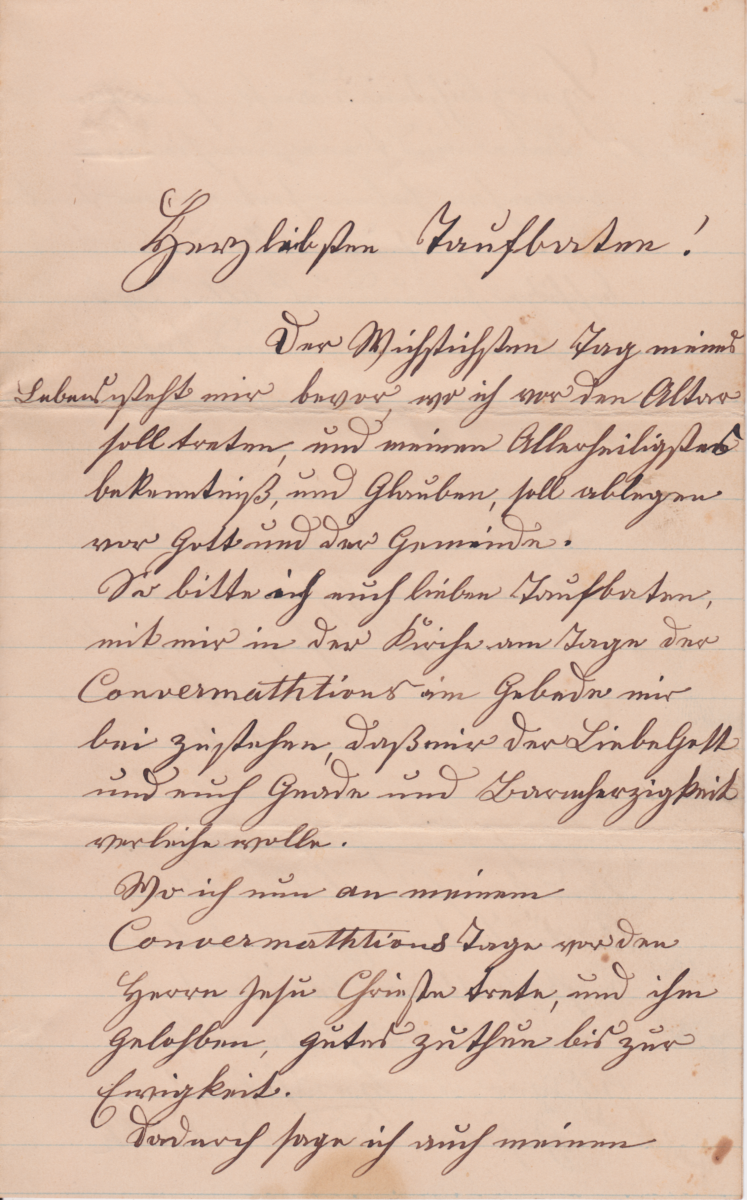 Herzlibsten Taufbaten!
Der Wichstichsten Tag meines
Lebens steht mir bevor, wo ich vor den Altar
soll treten, und meinen Allerheiligstes
bekenntniß, und Glauben, soll ablegen
vor Gott und der Gemeinde.
So bitte ich euch lieben Taufbaten,
mit mir in der Kirche am Tage der
Convermathtions im Gebede mir
bei zustehen, daß mir der Liebe Gott
und euch Gnade und Barmherzigkeit
verleihe wolle.
Wo ich nun an meinem
Convermathtions Tage vor den
Herrn Jesu Christe trete, und ihm
Gelohben, gutes zuthun bis zur
Ewigkeit.
Dadurch sage ich auch meinen